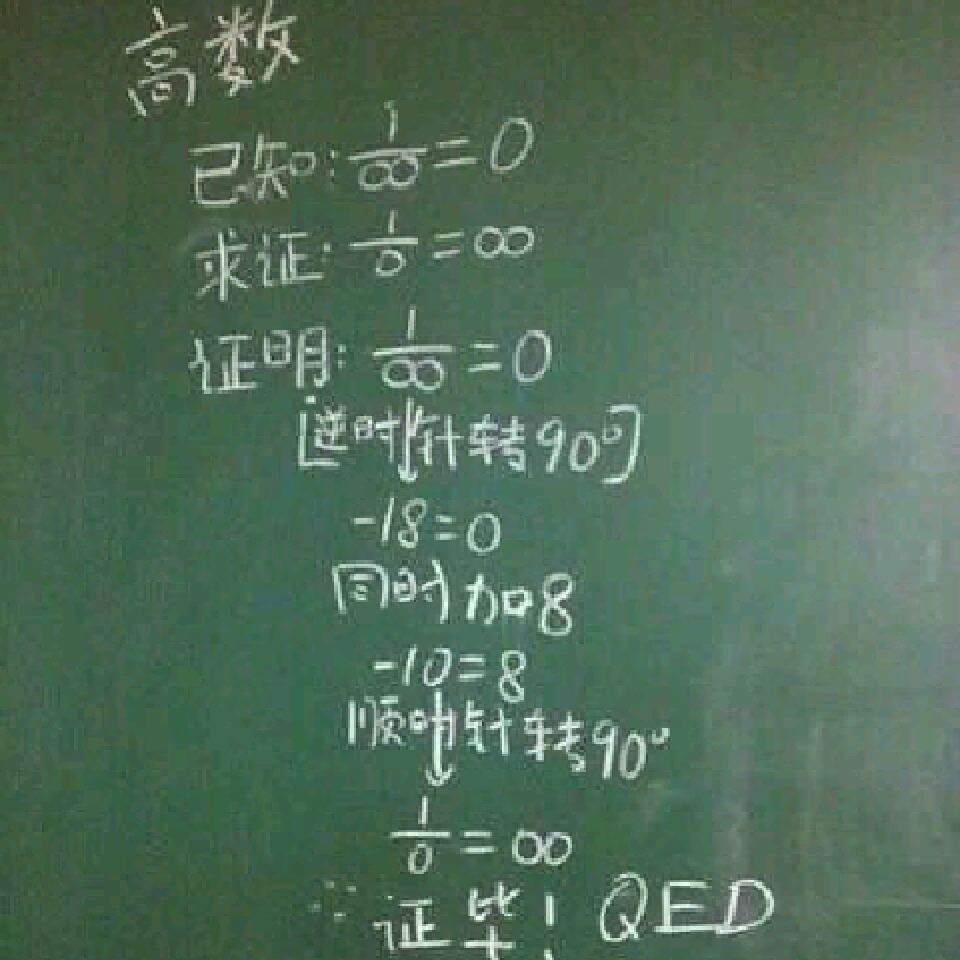 高数
已知: 1/∞ = 0
求证: 1/0 = ∞
证明: 1/∞ = 0
[逆时针转90°]
-18=0
同时加8
-10=8
顺时针转90°
1/0 = ∞
∵ 证毕! QED